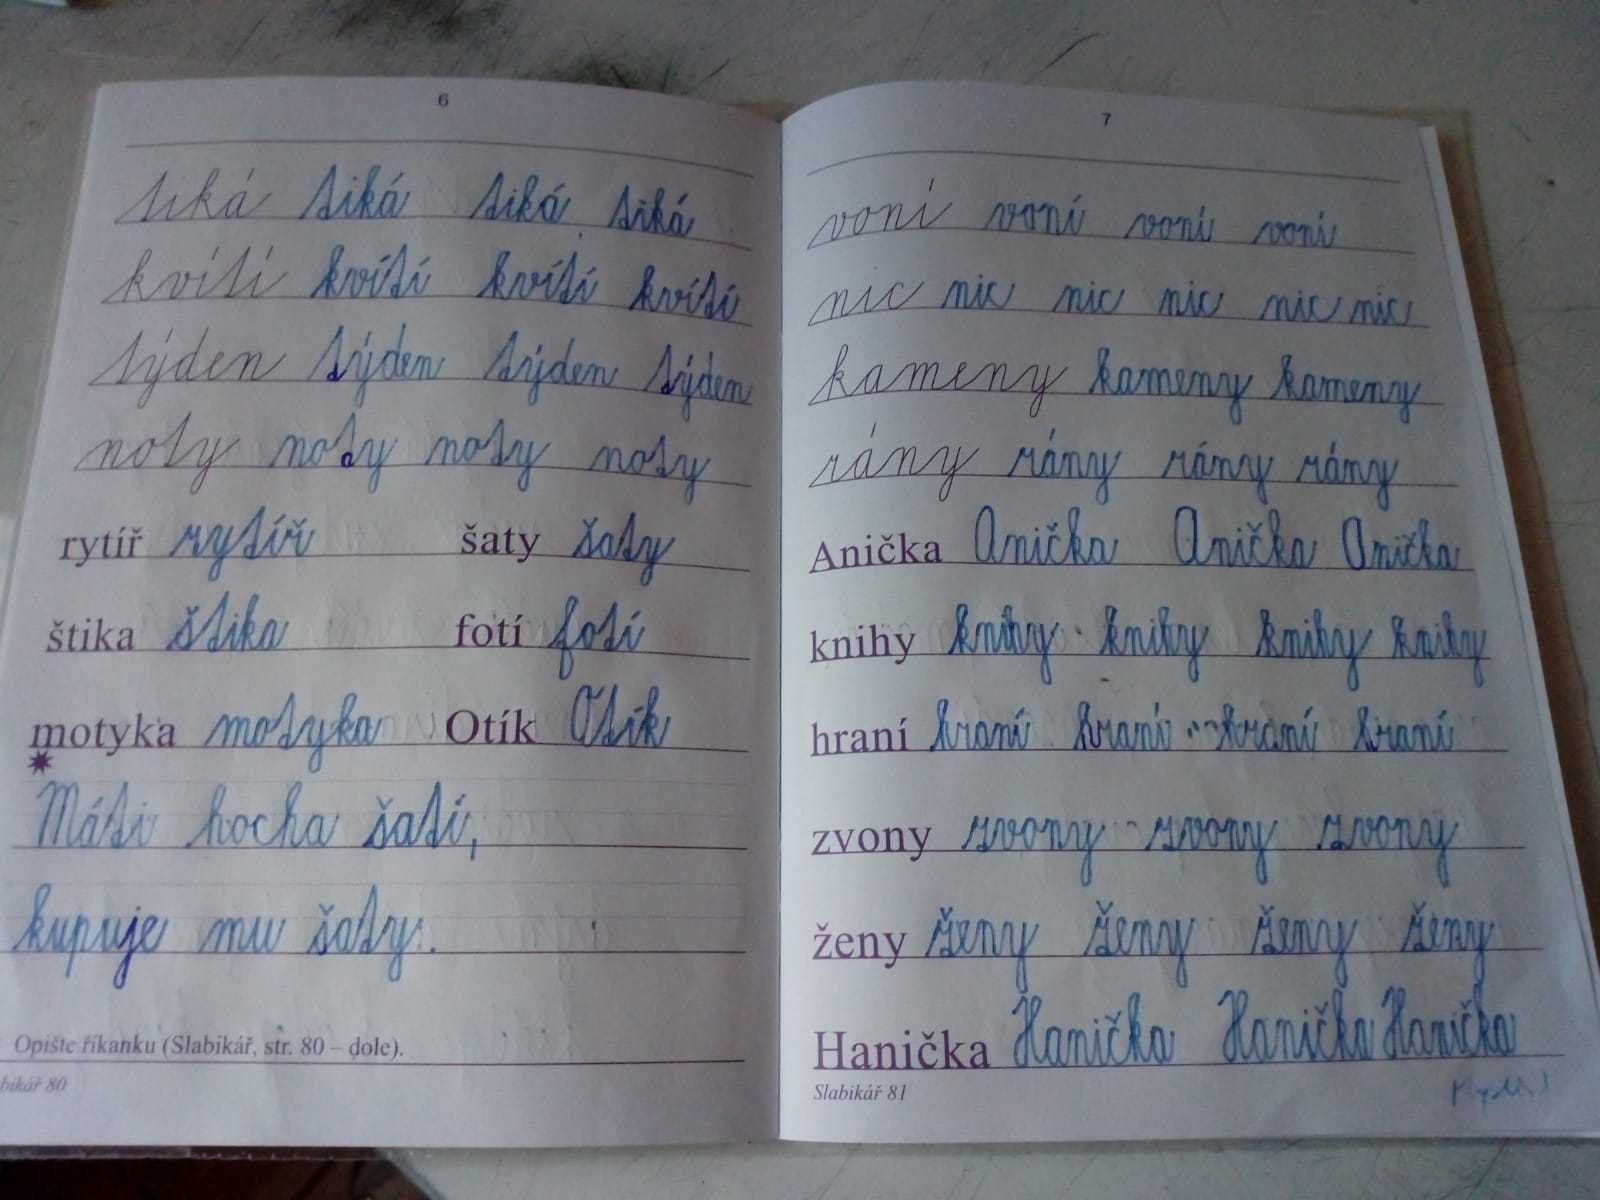 6
tiká tiká tiká tiká
kvítí kvítí kvítí kvítí
týden týden týden týden
noty noty noty noty
rytíř rytíř šaty šaty
štika štika fotí fotí
motyka motyka Otík Otík
Máti hocha šatí,
kupuje mu šaty.
Opište říkanku (Slabikář, str. 80 – dole).
bikář 80
7
voní voní voní voní
nic nic nic nic nic nic
kameny kameny kameny
rány rány rány rány
Anička Anička Anička Anička
knihy knihy knihy knihy knihy
hraní hraní hraní hraní hraní
zvony zvony zvony zvony
ženy ženy ženy ženy ženy
Hanička Hanička Hanička Hanička
Slabikář 81